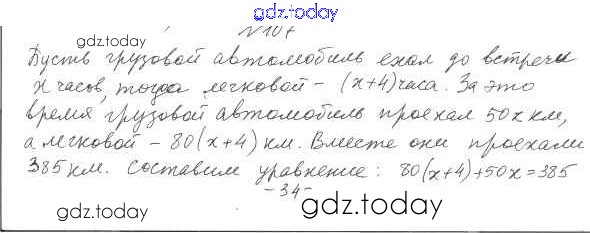 gdz.today
№107
gdz.today
Пусть грузовой автомобиль ехал до встречи
x часов, тогда легковой – (x+4) часа. За это
время, грузовой автомобиль проехал 50x км,
а легковой – 80(x+4) км. Вместе они проехали
385 км. Составим уравнение: 80(x+4)+50x=385
-34-
gdz.today
gdz.today